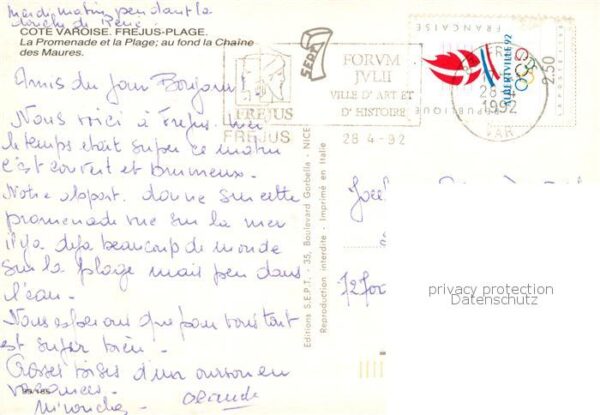 Mardi matin pendant la
douche de René
CÔTE VAROISE. FREJUS-PLAGE.
La Promenade et la Plage; au fond la Chaîne
des Maures.
Amis du jour Bonjour!
Nous voici à Fréjus hier
le temps était super ce matin
c'est couvert et brumeux.
Notre appart. donne sur cette
promenade vue sur la mer
il y a déjà beaucoup de monde
sur la plage mais peu dans
l'eau.
Nous espérons que pour vous tout
est super bien.
Grosses bises d'un ourson en
vacances.
Claude
99/185
SEPT
FREJUS
FREJUS
FORVM
JVLII
VILLE D'ART ET
D'HISTOIRE
28-4-92
REPUBLIQUE
FRANÇAISE
ALBERTVILLE 92
2,50
28-4
1992
VAR
Editions S.E.P.T. - 35, Boulevard Gorbella - NICE
Reproduction interdite - Imprimé en Italie
privacy protection
Datenschutz